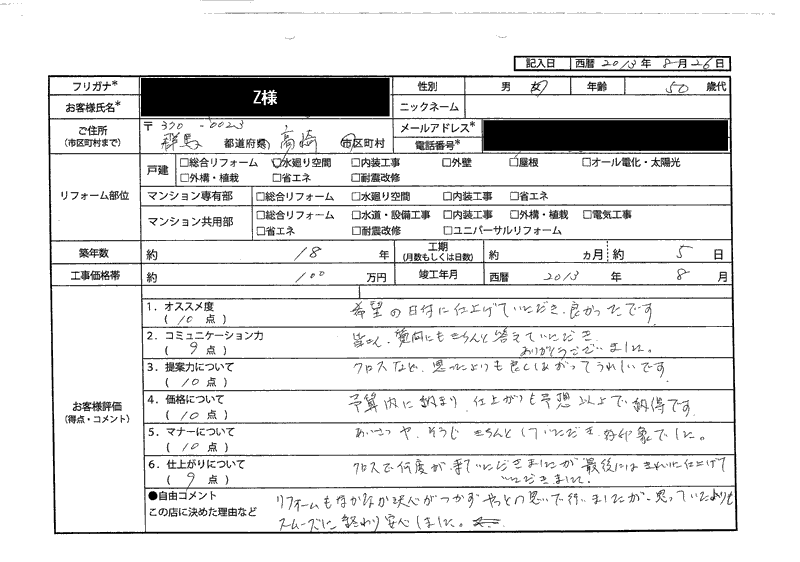 記入日 西暦 2013 年 8 月 26 日
フリガナ* Z様 性別 男 女 年齢 50 歳代
お客様氏名* ニックネーム
ご住所 (市区町村まで) 〒 370-0023 群馬 都道府県 高崎 市区町村 メールアドレス*
電話番号*
リフォーム部位 戸建 □総合リフォーム ☑水廻り空間 □内装工事 □外壁 □屋根 □オール電化・太陽光
□外構・植栽 □省エネ □耐震改修
マンション専有部 □総合リフォーム □水廻り空間 □内装工事 □省エネ
マンション共用部 □総合リフォーム □水道・設備工事 □内装工事 □外構・植栽 □電気工事
□省エネ □耐震改修 □ユニバーサルリフォーム
築年数 約 18 年 工期 (月数もしくは日数) 約 カ月 約 5 日
工事価格帯 約 100 万円 竣工年月 西暦 2013 年 8 月
お客様評価 (得点・コメント)
1．オススメ度 ( 10 点 ) 希望の日付に仕上げていただき、良かったです
2．コミュニケーション力 ( 9 点 ) 皆さん、質問にもきちんと答えていただき
ありがとうございました。
3．提案力について ( 10 点 ) クロスなど、思ったよりも良くしあがってうれしいです
4．価格について ( 10 点 ) 予算内に納まり、仕上がりも予想以上で、納得です
5．マナーについて ( 10 点 ) あいさつや、そうじ きちんとしていただき、好印象でした。
6．仕上がりについて ( 9 点 ) クロスで何度か、来ていただきましたが 最後には きれいに仕上げて
いただきました。
●自由コメント この店に決めた理由など リフォームもなかなか決心がつかず やっとの思いで行いましたが、思っていたよりも
スムーズに終わり安心しました。